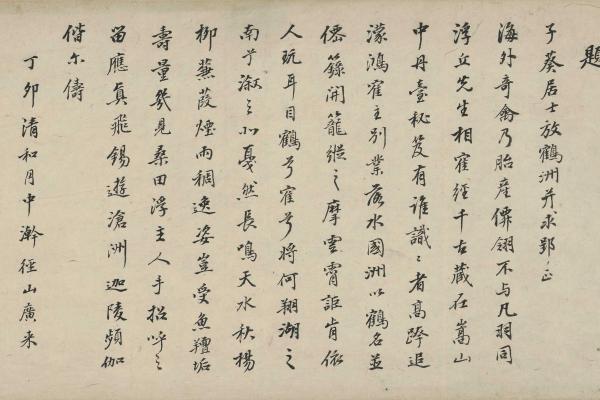 題
子葵居士放鶴洲并求郢正
海外奇禽乃胎產僊翎不与凡羽同
浮丘先生相寉經千古藏在嵩山
中丹臺秘笈有誰識〻者高蹤追
濛鴻寉主別業落水國洲以鶴名並
僊籙開籠縱之摩雲霄詎肯依
人玩耳目鶴兮寉兮將何翔湖之
南兮溆之北戞然長鳴天水秋楊
柳蒹葭煙雨稠逸姿豈受魚羶垢
壽量幾見桑田浮主人手招呼之
留應真飛錫遊滄洲迦陵頻伽
偕尔儔
丁卯清和月中澣徑山廣来